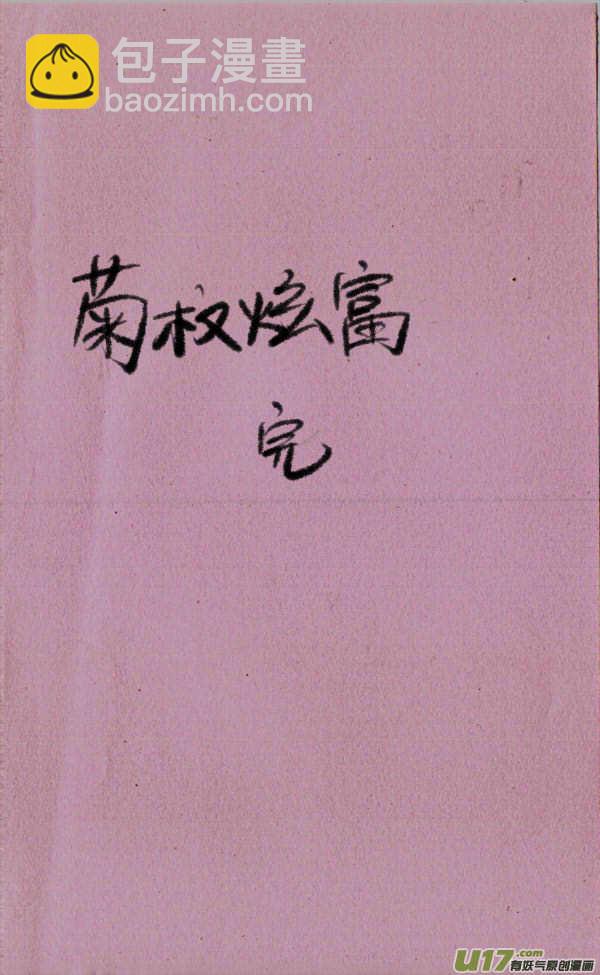 包子漫畫
baozimh.com
菊叔炫富
完
U17.com
有妖气原创漫画